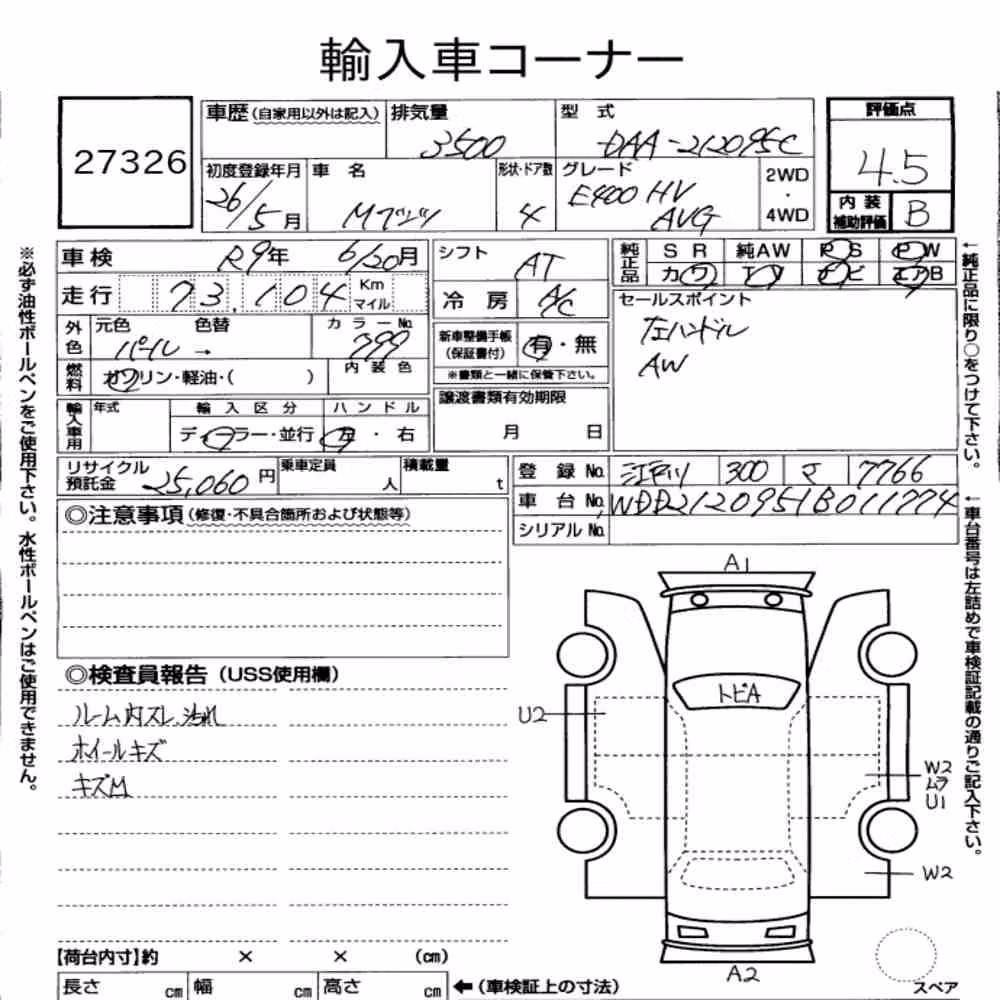 輸入車コーナー
27326
車歴(自家用以外は記入) 排気量 3500 型 式 DAA-212095C 評価点 4.5
初度登録年月 26/5月 車 名 Mベンツ 形状・ドア数 4 グレード E400 HV AVG 2WD ・ 4WD
内装補助評価 B
車検 R9年 6/20月 シフト AT 純正品 SR 純AW PS PW
カワ エアB
走行 73,104 Km マイル 冷房 A/C
セールスポイント
左ハンドル
AW
外色 元色 パール 色替 → カラーNo. 799
新車整備手帳(保証書付) 有・無
※書類と一緒に保管下さい。
燃料 ガソリン・軽油・( ) 内装色
譲渡書類有効期限 月 日
輸入車用 年式 輸入区分 ディーラー・並行 ハンドル 左・右
リサイクル預託金 25,060円 乗車定員 人 積載量 t
登録No. 江戸川 300 マ 7766
車台No. WDD2120951B011774
シリアルNo.
◎注意事項(修復・不具合箇所および状態等)
◎検査員報告(USS使用欄)
ルーム内スレ、汚れ
ホイールキズ
キズM
A1
トビA
U2
W2
ムラ
U1
W2
A2
スペア
【荷台内寸】約 × × (cm)
長さ cm 幅 cm 高さ cm ←(車検証上の寸法)
※必ず油性ボールペンをご使用下さい。水性ボールペンはご使用できません。
←純正品に限り○をつけて下さい。
←車台番号は左詰めで車検証記載の通りご記入下さい。